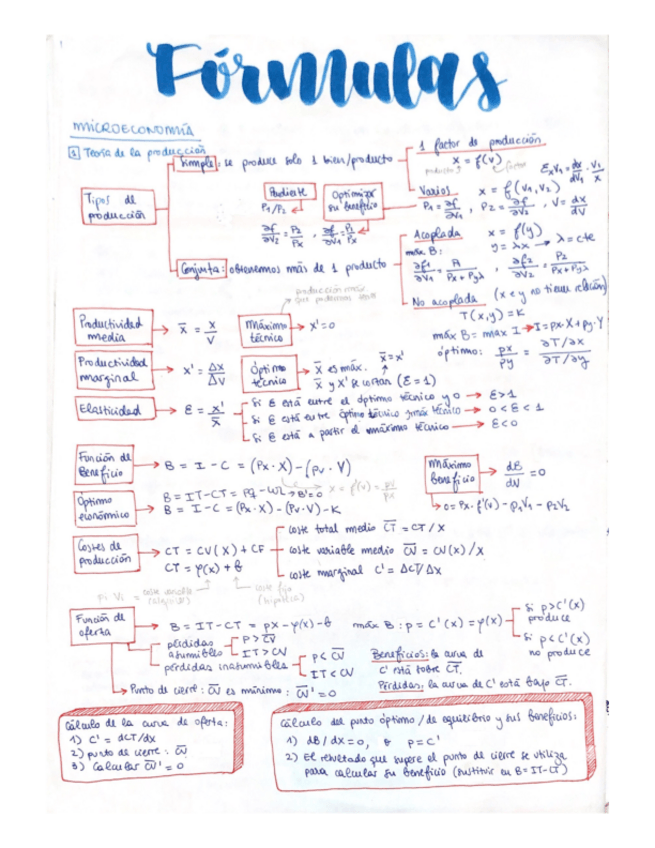 Fórmulas
MICROECONOMÍA
1 Teoría de la producción
Tipos de producción
Simple: se produce solo 1 bien/producto
1 factor de producción
x = f(v)
producto factor
Ex,V₁ = dx/dV₁ · V₁/x
Varios x = f(V₁, V₂)
P₁ = ∂f/∂V₁, P₂ = ∂f/∂V₂, V = dx/dV
Pendiente
P₁/P₂
Optimizar su beneficio
∂f/∂V₂ = P₂/Px, ∂f/∂V₁ = P₁/Px
Conjunta: obtenemos más de 1 producto
Acoplada x = f(y)
y = λx → λ = cte
máx B:
∂f₁/∂V₁ = P₁/Px+Pyλ, ∂f₂/∂V₂ = P₂/Px+Pyλ
No acoplada (x e y no tienen relación)
T(x,y) = K
máx B = máx I → I = px·X + py·Y
óptimo: px/py = ∂T/∂x / ∂T/∂y
Productividad media → x̄ = x/V
producción máx que podemos tener
Máximo técnico → x' = 0
Productividad marginal → x' = Δx/ΔV
Óptimo técnico → x̄ es máx. x̄ = x'
x̄ y x' se cortan (Ɛ = 1)
Elasticidad → Ɛ = x'/x̄
Si Ɛ está entre el óptimo técnico y 0 → Ɛ>1
Si Ɛ está entre óptimo técnico y máx técnico → 0 < Ɛ < 1
Si Ɛ está a partir el máximo técnico → Ɛ<0
Función de Beneficio → B = I - C = (Px · X) - (Pv · V)
Máximo beneficio → dB/dV = 0
→ 0 = Px · f'(v) - p₁V₁ - p₂V₂
Óptimo económico → B = IT - CT = Pq - WL → B' = 0 x = f'(v) = pv/px
B = I - C = (Px · X) - (Pv · V) - K
Costes de producción → CT = CV(X) + CF
CT = φ(x) + b
coste total medio C̅T̅ = CT/X
coste variable medio C̅V̅ = CV(X)/X
coste marginal C' = ΔCT/ΔX
pi Vi = coste variable coste fijo
Función de oferta → B = IT - CT = px - φ(x) - b
máx B: p = C'(x) = φ(x)
Si p>C'(x) produce
Si p<C'(x) no produce
pérdidas asumibles
P > C̅V̅
IT > CV
pérdidas inasumibles
P < C̅V̅
IT < CV
Beneficios: la curva de C' está sobre C̅T̅.
Pérdidas: la curva de C' está bajo C̅T̅.
→ Punto de cierre: C̅V̅ es mínimo: C̅V̅' = 0
Cálculo de la curva de oferta:
1) C' = dCT/dx
2) punto de cierre: C̅V̅
3) Calcular C̅V̅' = 0
Cálculo del punto óptimo / de equilibrio y sus beneficios:
1) dB/dx = 0, p = C'
2) El resultado que supere el punto de cierre se utiliza
para calcular su beneficio (sustituir en B = IT - CT)